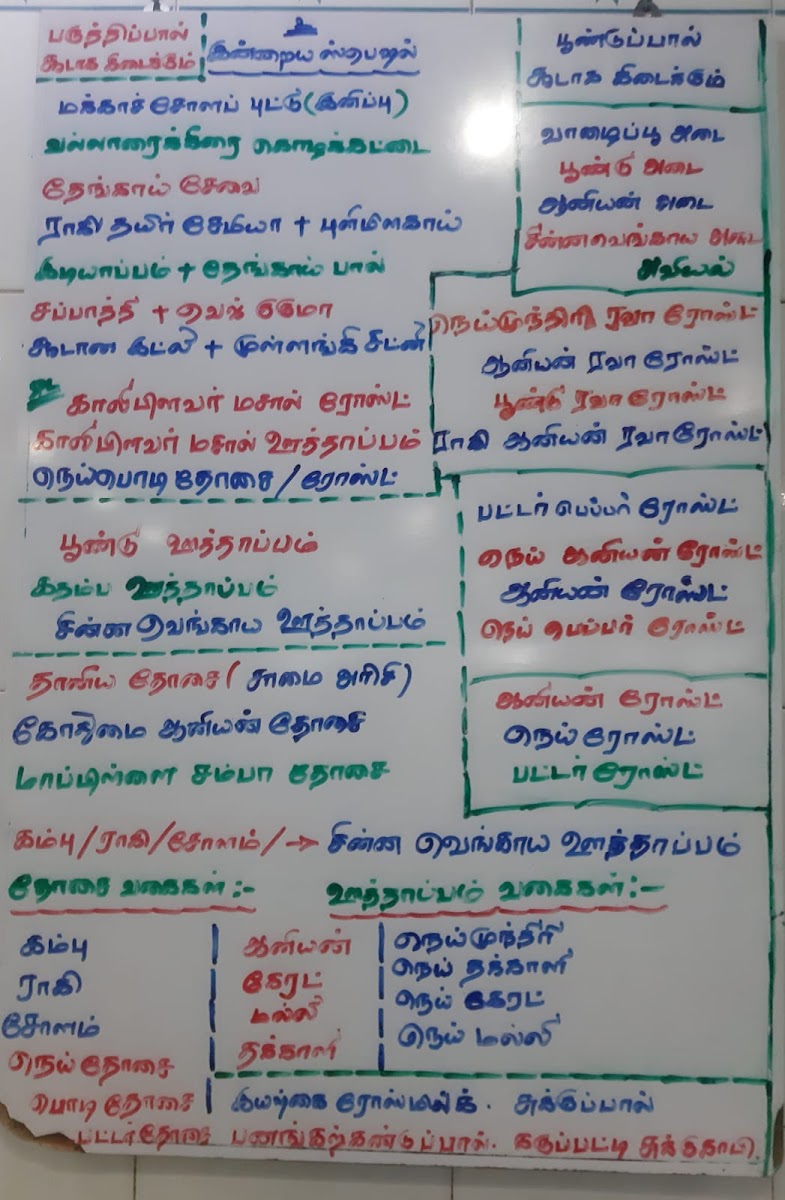 பருத்திப்பால்
சூடாக கிடைக்கும்
இன்றைய ஸ்பெஷல்
மக்காச்சோளப் புட்டு(இனிப்பு)
வல்லாரைக்கீரை கொழுக்கட்டை
தேங்காய் சேவை
ராகி தயிர் சேமியா + புளிமிளகாய்
இடியாப்பம் + தேங்காய் பால்
சப்பாத்தி + வெஜ் குமோ
சூடான இட்லி + முள்ளங்கி சட்னி
காலிபிளவர் மசால் ரோஸ்ட்
காலிபிளவர் மசால் ஊத்தாப்பம்
நெய்பொடி தோசை/ரோஸ்ட்
பூண்டு ஊத்தாப்பம்
கதம்ப ஊத்தாப்பம்
சின்ன வெங்காய ஊத்தாப்பம்
தானிய தோசை (சாமை அரிசி)
கோதுமை ஆனியன் தோசை
மாப்பிள்ளை சம்பா தோசை
பூண்டுப்பால்
சூடாக கிடைக்கும்
வாழைப்பூ அடை
பூண்டு அடை
ஆனியன் அடை
சின்னவெங்காய அடை
அவியல்
நெய்முந்திரி ரவா ரோஸ்ட்
ஆனியன் ரவா ரோஸ்ட்
பூண்டு ரவா ரோஸ்ட்
ராகி ஆனியன் ரவா ரோஸ்ட்
பட்டர் பெப்பர் ரோஸ்ட்
நெய் ஆனியன் ரோஸ்ட்
ஆனியன் ரோஸ்ட்
நெய் பெப்பர் ரோஸ்ட்
ஆனியன் ரோஸ்ட்
நெய் ரோஸ்ட்
பட்டர் ரோஸ்ட்
கம்பு/ராகி/சோளம்/→ சின்ன வெங்காய ஊத்தாப்பம்
தோசை வகைகள் :-
கம்பு
ராகி
சோளம்
நெய் தோசை
பொடி தோசை
பட்டர்தோசை
ஊத்தாப்பம் வகைகள் :-
ஆனியன்
கேரட்
மல்லி
தக்காளி
நெய்முந்திரி
நெய் தக்காளி
நெய் கேரட்
நெய் மல்லி
இயற்கை ரோஸ்மில்க். சுக்குப்பால்
பனங்கற்கண்டுப்பால். கருப்பட்டி சுக்குகாபி.